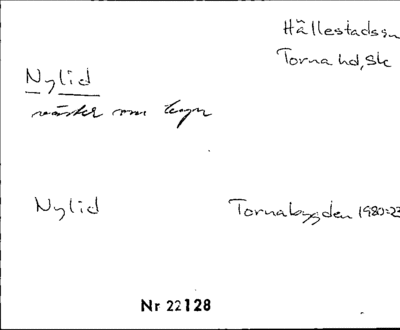 Hällestads sn
Torna hd, Sk
Nylid
väster om byn
Nylid
Tornabygden 1980:23
Nr 22128